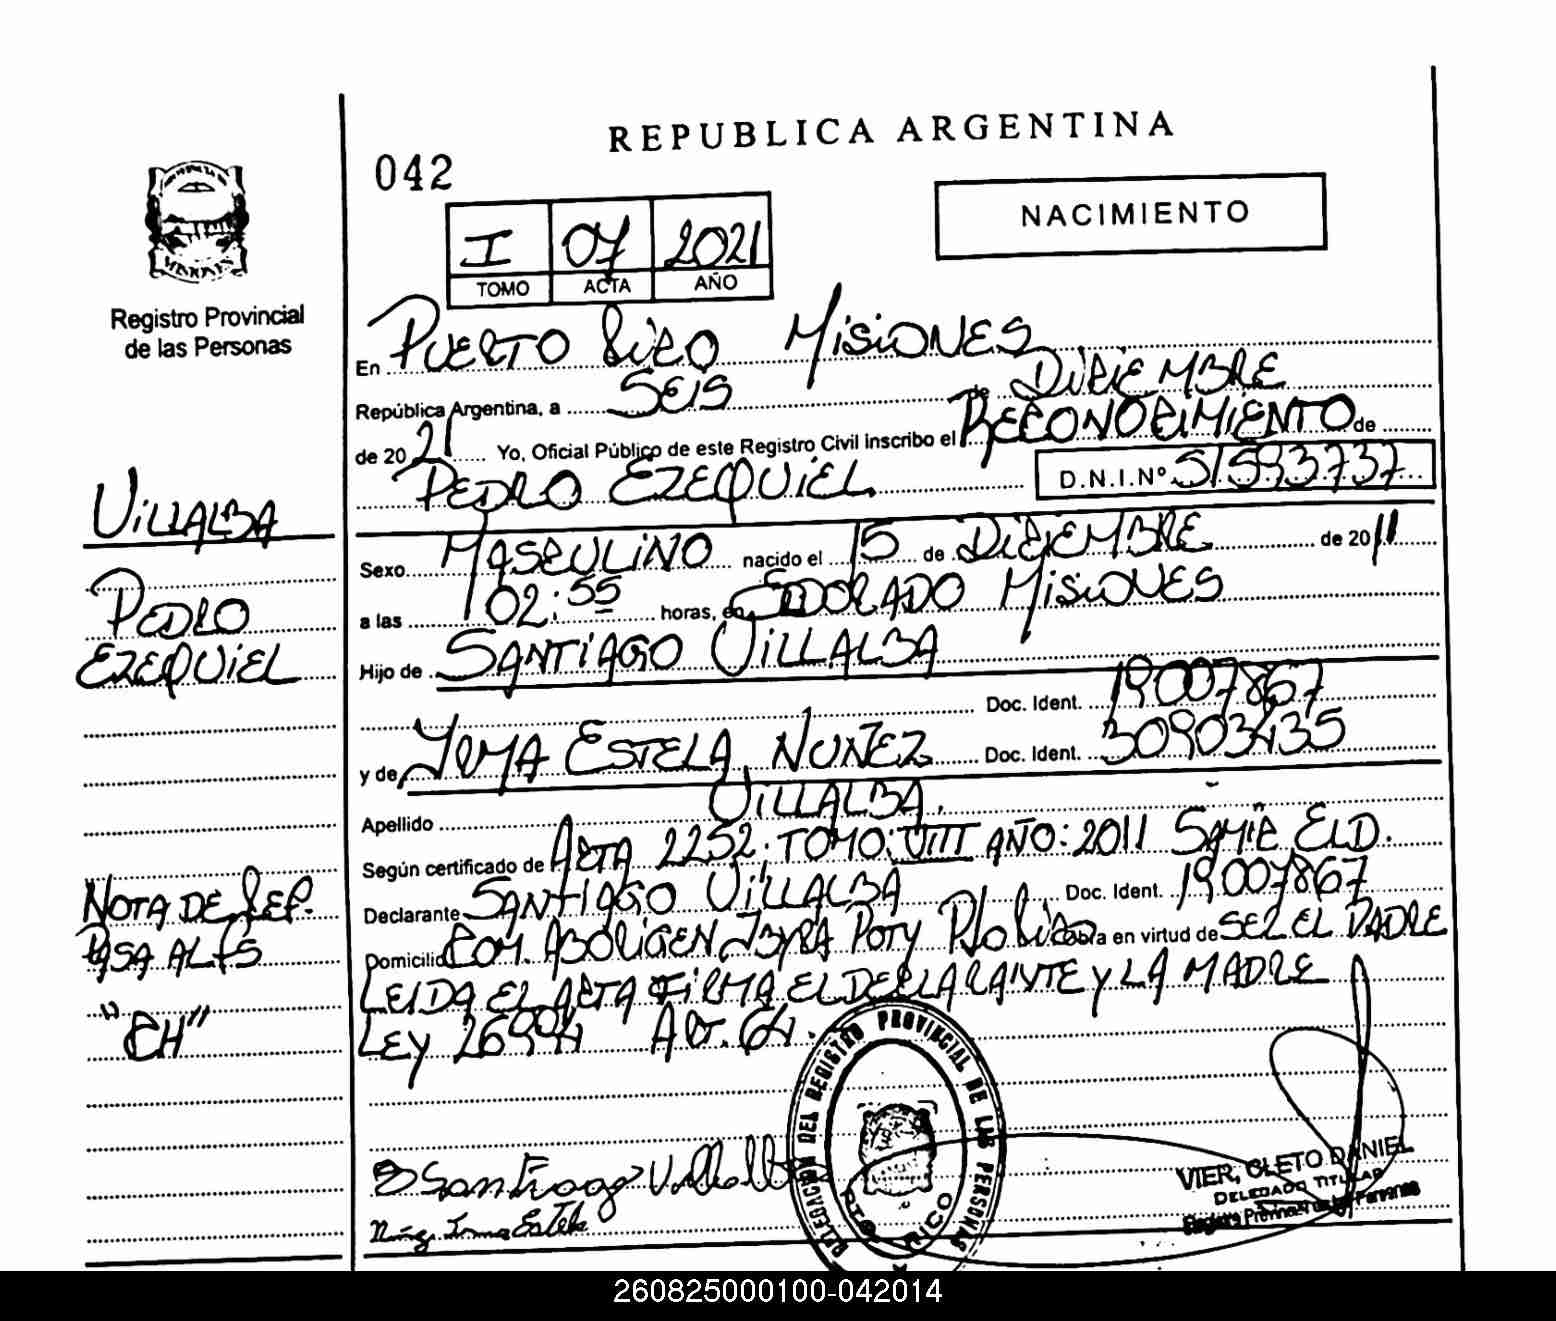 REPUBLICA ARGENTINA
042
NACIMIENTO
I 07 2021
TOMO ACTA AÑO
Registro Provincial
de las Personas
En PUERTO RICO MISIONES
República Argentina, a SEIS de DICIEMBRE
de 2021 Yo, Oficial Público de este Registro Civil inscribo el RECONOCIMIENTO de
PEDRO EZEQUIEL D.N.I.Nº 51593737
VILLALBA
PEDRO
EZEQUIEL
Sexo MASCULINO nacido el 15 de DICIEMBRE de 2011
a las 02:55 horas, en ELDORADO MISIONES
Hijo de SANTIAGO VILLALBA
Doc. Ident. 19007867
y de IRMA ESTELA NUÑEZ Doc. Ident. 30903435
Apellido VILLALBA.
Según certificado de ACTA 2252. TOMO: VIII AÑO: 2011 SAMIC ELD.
Declarante SANTIAGO VILLALBA Doc. Ident. 19007867
Domicilio COM. ABORIGEN IBYRA POTY Pto Rico Obra en virtud de SER EL PADRE
LEIDA EL ACTA FIRMA EL DECLARANTE Y LA MADRE
LEY 26994 Art. 64.
NOTA DE REF.
PASA AL FS
"CH"
Santiago Villalba
Núñez Irma Estela
DELEGACION DEL REGISTRO PROVINCIAL DE LAS PERSONAS
PTO RICO
VIER, CLETO DANIEL
DELEGADO TITULAR
Registro Provincial de las Personas
260825000100-042014